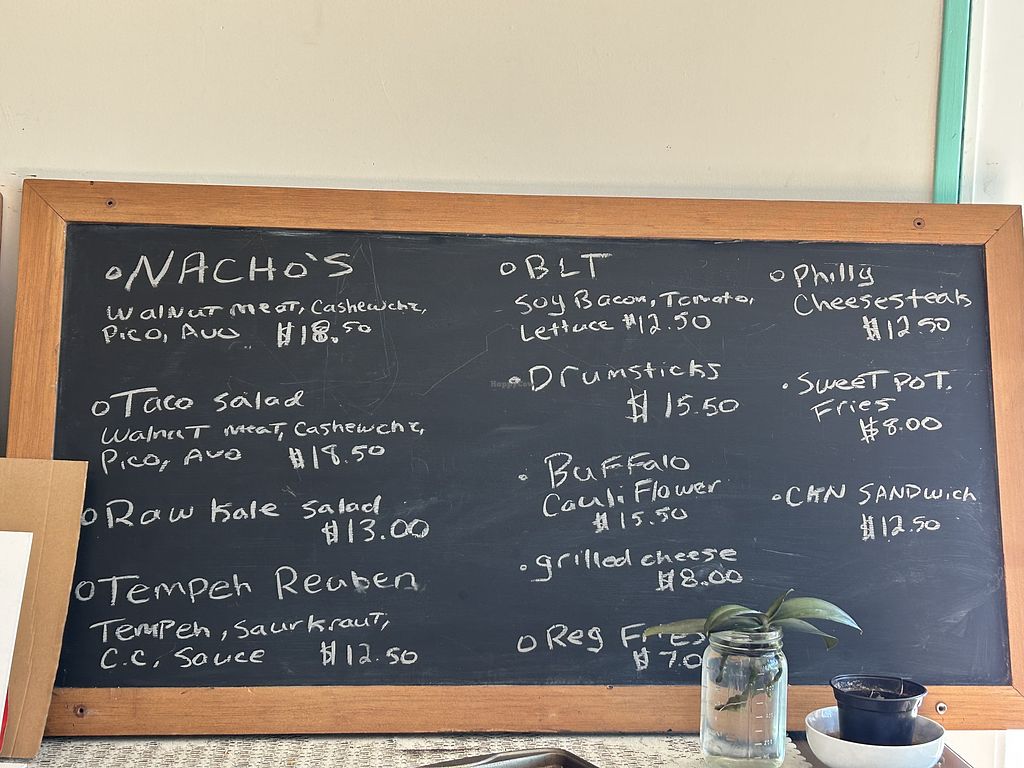 NACHO'S
Walnut meat, Cashewchz,
Pico, Avo $18.50
Taco salad
Walnut meat, Cashewchz,
Pico, Avo $18.50
Raw kale salad
$13.00
Tempeh Reuben
Tempeh, Saurkraut,
C.C. Sauce $12.50
BLT
Soy Bacon, Tomato,
Lettuce $12.50
Drumsticks
$15.50
Buffalo
Cauliflower
$15.50
grilled cheese
$8.00
Reg Fries
$7.0
Philly
Cheesesteaks
$12.50
Sweet Pot.
Fries
$8.00
CKN SANDwich
$12.50
HappyCow